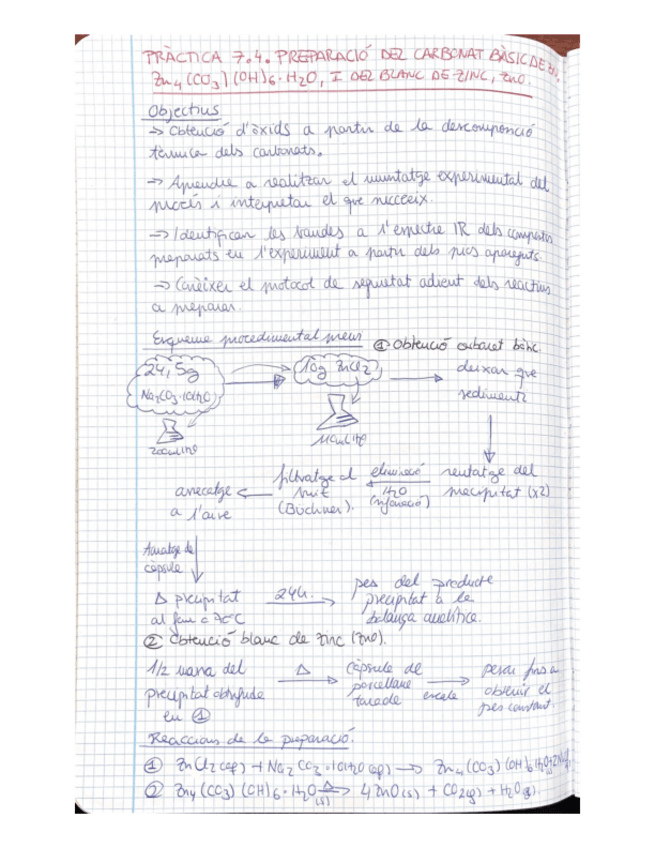 PRÀCTICA 7.4. PREPARACIÓ DEL CARBONAT BÀSIC DE Zn,
Zn4(CO3)(OH)6·H2O, I DEL BLANC DE ZINC, ZnO.
Objectius
→ Obtenció d'òxids a partir de la descomposició
tèrmica dels carbonats.
→ Aprendre a realitzar el muntatge experimental del
procés i interpretar el que succeeix.
→ Identificar les bandes a l'espectre IR dels compostos
preparats en l'experiment a partir dels pics apareguts.
→ Conèixer el protocol de seguretat adient dels reactius
a preparar.
Esquema procedimental previ
① Obtenció carbonat bàsic.
24,5g
Na2CO3·10H2O
10g ZnCl2
deixar que
sedimenti
rentatge del
precipitat (x2)
eliminació
H2O
filtratge al
buit
(Büchner).
assecatge
a l'aire
Taratge de
càpsula
Δ precipitat
al forn a 70°C
24h.
pes del producte
precipitat a la
balança analítica.
② Obtenció blanc de zinc (ZnO).
1/2 del
precipitat
en ①
Δ
Càpsula de
porcellana
tarada
pesar fins a
obtenir el
pes constant.
Reaccions de la preparació.
① ZnCl2(aq) + Na2CO3·10H2O(aq) → Zn4(CO3)(OH)6·H2O
② Zn4(CO3)(OH)6·H2O(s) Δ→ 4ZnO(s) + CO2(g) + H2O(g).